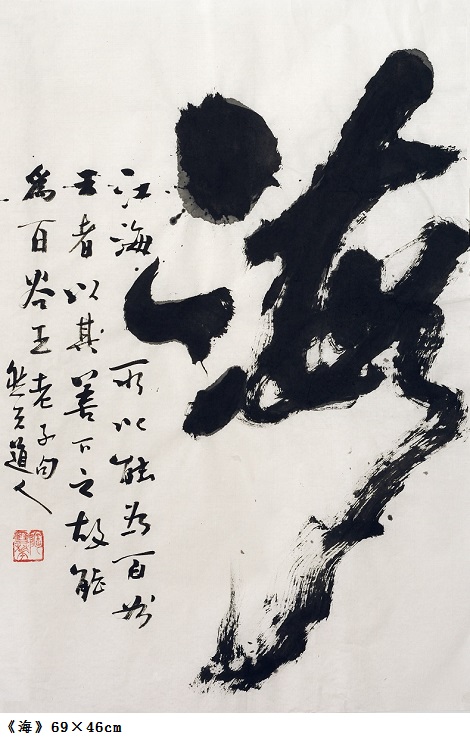 海
江海所以能为百
王者以其善下之故能
為百谷王老子句
道人
《海》69×46cm